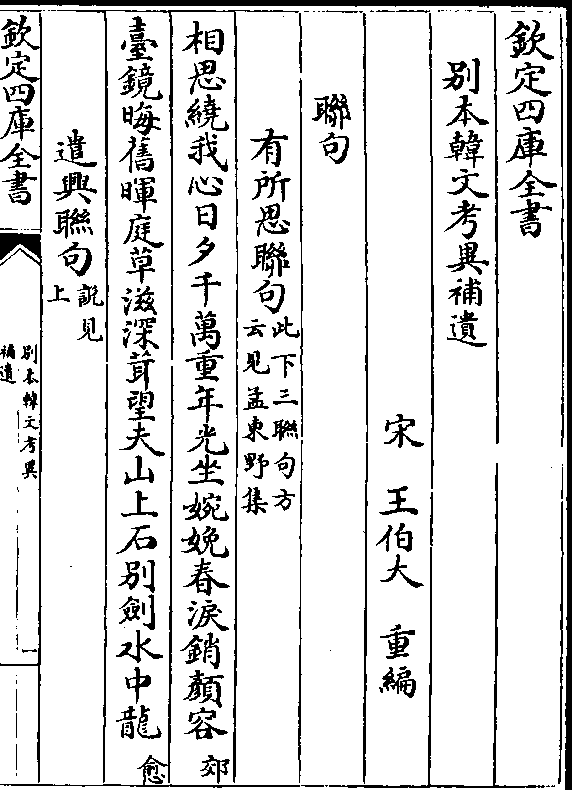 欽定四庫全書
別本韓文考異補遺
宋 王伯大 重編
聯句
有所思聯句此下三聯句方云見孟東野集
相思繞我心日夕千萬重年光坐婉娩春淚銷顏容郊
臺鏡晦舊暉庭草滋深茸望夫山上石別劍水中龍愈
遣興聯句說見上
欽定四庫全書
別本韓文考異補遺
一